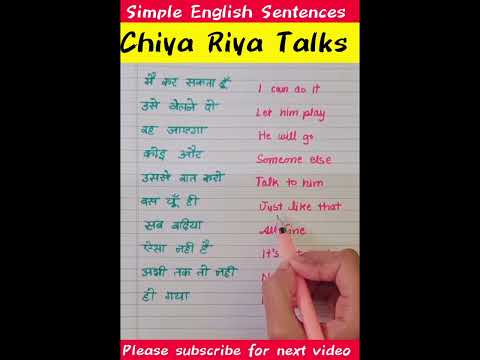 Simple English Sentences
Chiya Riya Talks
मैं कर सकता हूँ I can do it
उसे खेलने दो Let him play
वह जाएगा He will go
कोई और Someone else
उससे बात करो Talk to him
बस यूँ ही Just like that
सब बढ़िया All fine
ऐसा नहीं है It's
अभी तक तो नहीं
हो गया
Please subscribe for next video